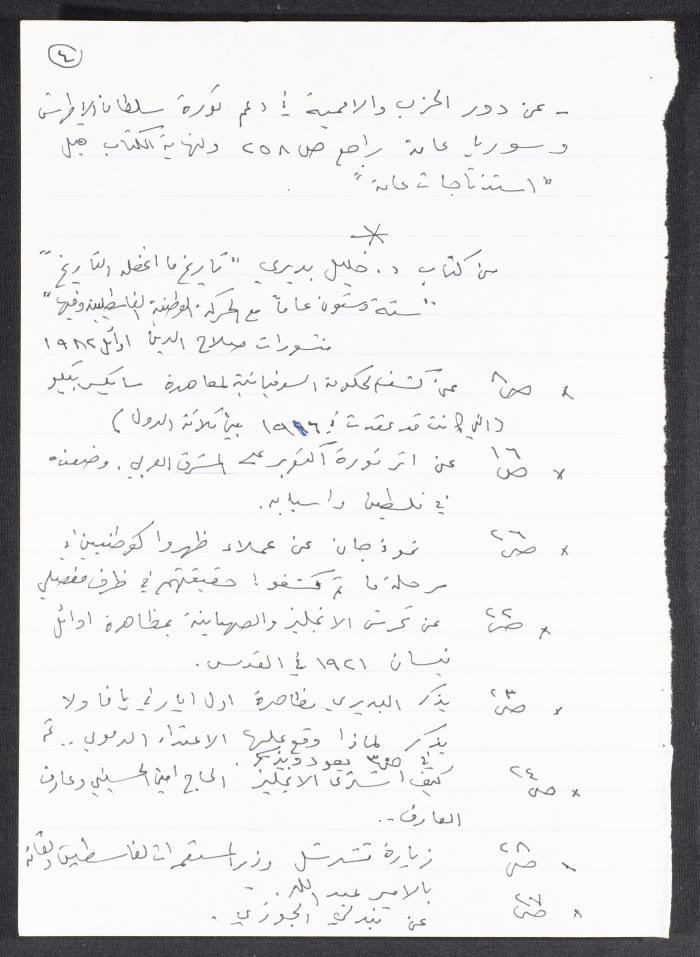 ٤
- عن دور الحزب والاممية في دعم ثورة سلطان الاطرش
و سوريا عامة راجع ص ٢٥٨ ونهاية الكتاب قبل
"استنتاجات عامة".
من كتاب د. خليل بديري "تاريخ ما اغفله التاريخ"
"ستة وستون عاماً مع الحركة الوطنية الفلسطينية وفيها"
منشورات صلاح الدين اوائل ١٩٨٢
× ص ٨ عن كشف الحكومة السوفياتية لمعاهدة سايكس بيكو
(التي كانت قد عقدت في ١٩١٦ بين ثلاثة الدول)
× ص ١٦ عن اثر ثورة أكتوبر على المشرق العربي. وضعفه
في فلسطين واسبابه.
× ص ٢٦ نموذجان عن عملاء ظهروا كوطنيين في
مرحلة ما ثم كشفوا! حقيقتهم في ظرف مفصلي
× ص ٢٢ عن تحرش الانجليز والصهاينة بمظاهرة اوائل
نيسان ١٩٢١ في القدس.
× ص ٢٣ يذكر البديري مظاهرة اول ايار في يافا ولا
يذكر لماذا وقع عليها الاعتداء الدموي .. ثم
في ص ٣ يعود ويذكر.
× ص ٢٤ كيف اشترى الانجليز الحاج امين الحسيني وعارف
العارف..
× ص ٢٨ زيارة تشرتشل وزير المستعمرات لفلسطين ولقائه
بالامير عبد الله. -
× ص ٢٧ عن بندلي الجوزي.